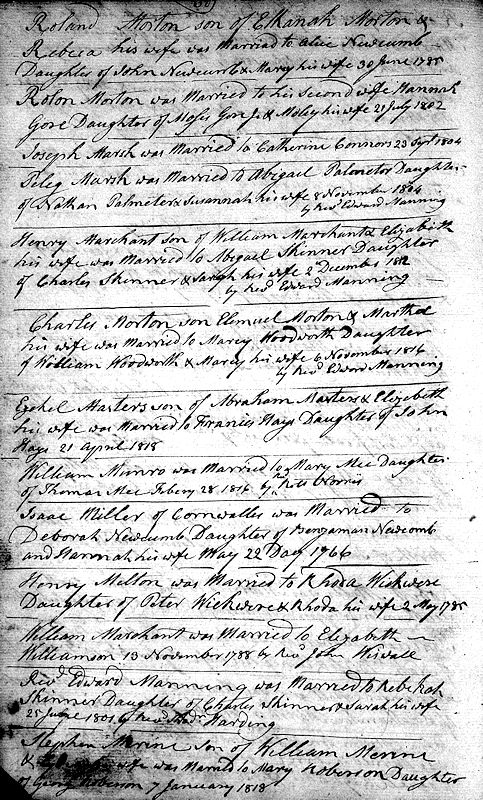 Roland Morton son of Elkanah Morton &
Rebeca his wife was Married to Alice Newcumb
Daughter of John Newcumb & Marcy his wife 30 June 1785
Rolon Morton was Married to his second wife Hannah
Gore Daughter of Moses Gore Jr & Moley his wife 21 July 1802
Joseph Marsh was Married to Catherine Connors 23 Sept 1804
Peleg Marsh was Married to Abigail Palmetor Daughter
of Nathan Palmeter & Susannah his wife 8 November 1804
by Revd Edward Manning
Henry Marchant son of William Marchant & Elizabeth
his wife was Married to Abigael Skinner Daughter
of Charles Skinner & Sarah his wife 2d December
by Revd Edward Manning
Charles Morton son Elemuel Morton & Martha
his wife was Married to Marcy Woodworth Daughter
of William Woodworth & Marcy his wife 6 November 1816
by Revd Edward Manning
Masters son of Abraham Masters & Elizebeth
his wife was Married to Francis Hays Daughter of John
Hays 21 April 1818
William Munro was Married to Mary Mee Daughter
of Thomas Mee Febery 28 1816 by Norris
Isaac Miller of Cornwalles was Married to
Deborah Newcumb Daughter of Benjaman Newcomb
and Hannah his wife May 22 Day 1766
Henry Mellon was Married to Rhoda Wickwere
Daughter of Peter Wickwere & Rhoda his wife 2 May 1785
William Marchant was Married to Elizabeth
Williamson 13 November 1788 by Revd John Wiswall
Revd Edward Manning was Married to Rebekah
Skinner Daughter of Charles Skinner & Sarah his wife
25 1801 by Revd Harding
Stephen Merine son of William Merine
& his wife was Married to Mary Roberson Daughter
of George Roberson 7 January 1818